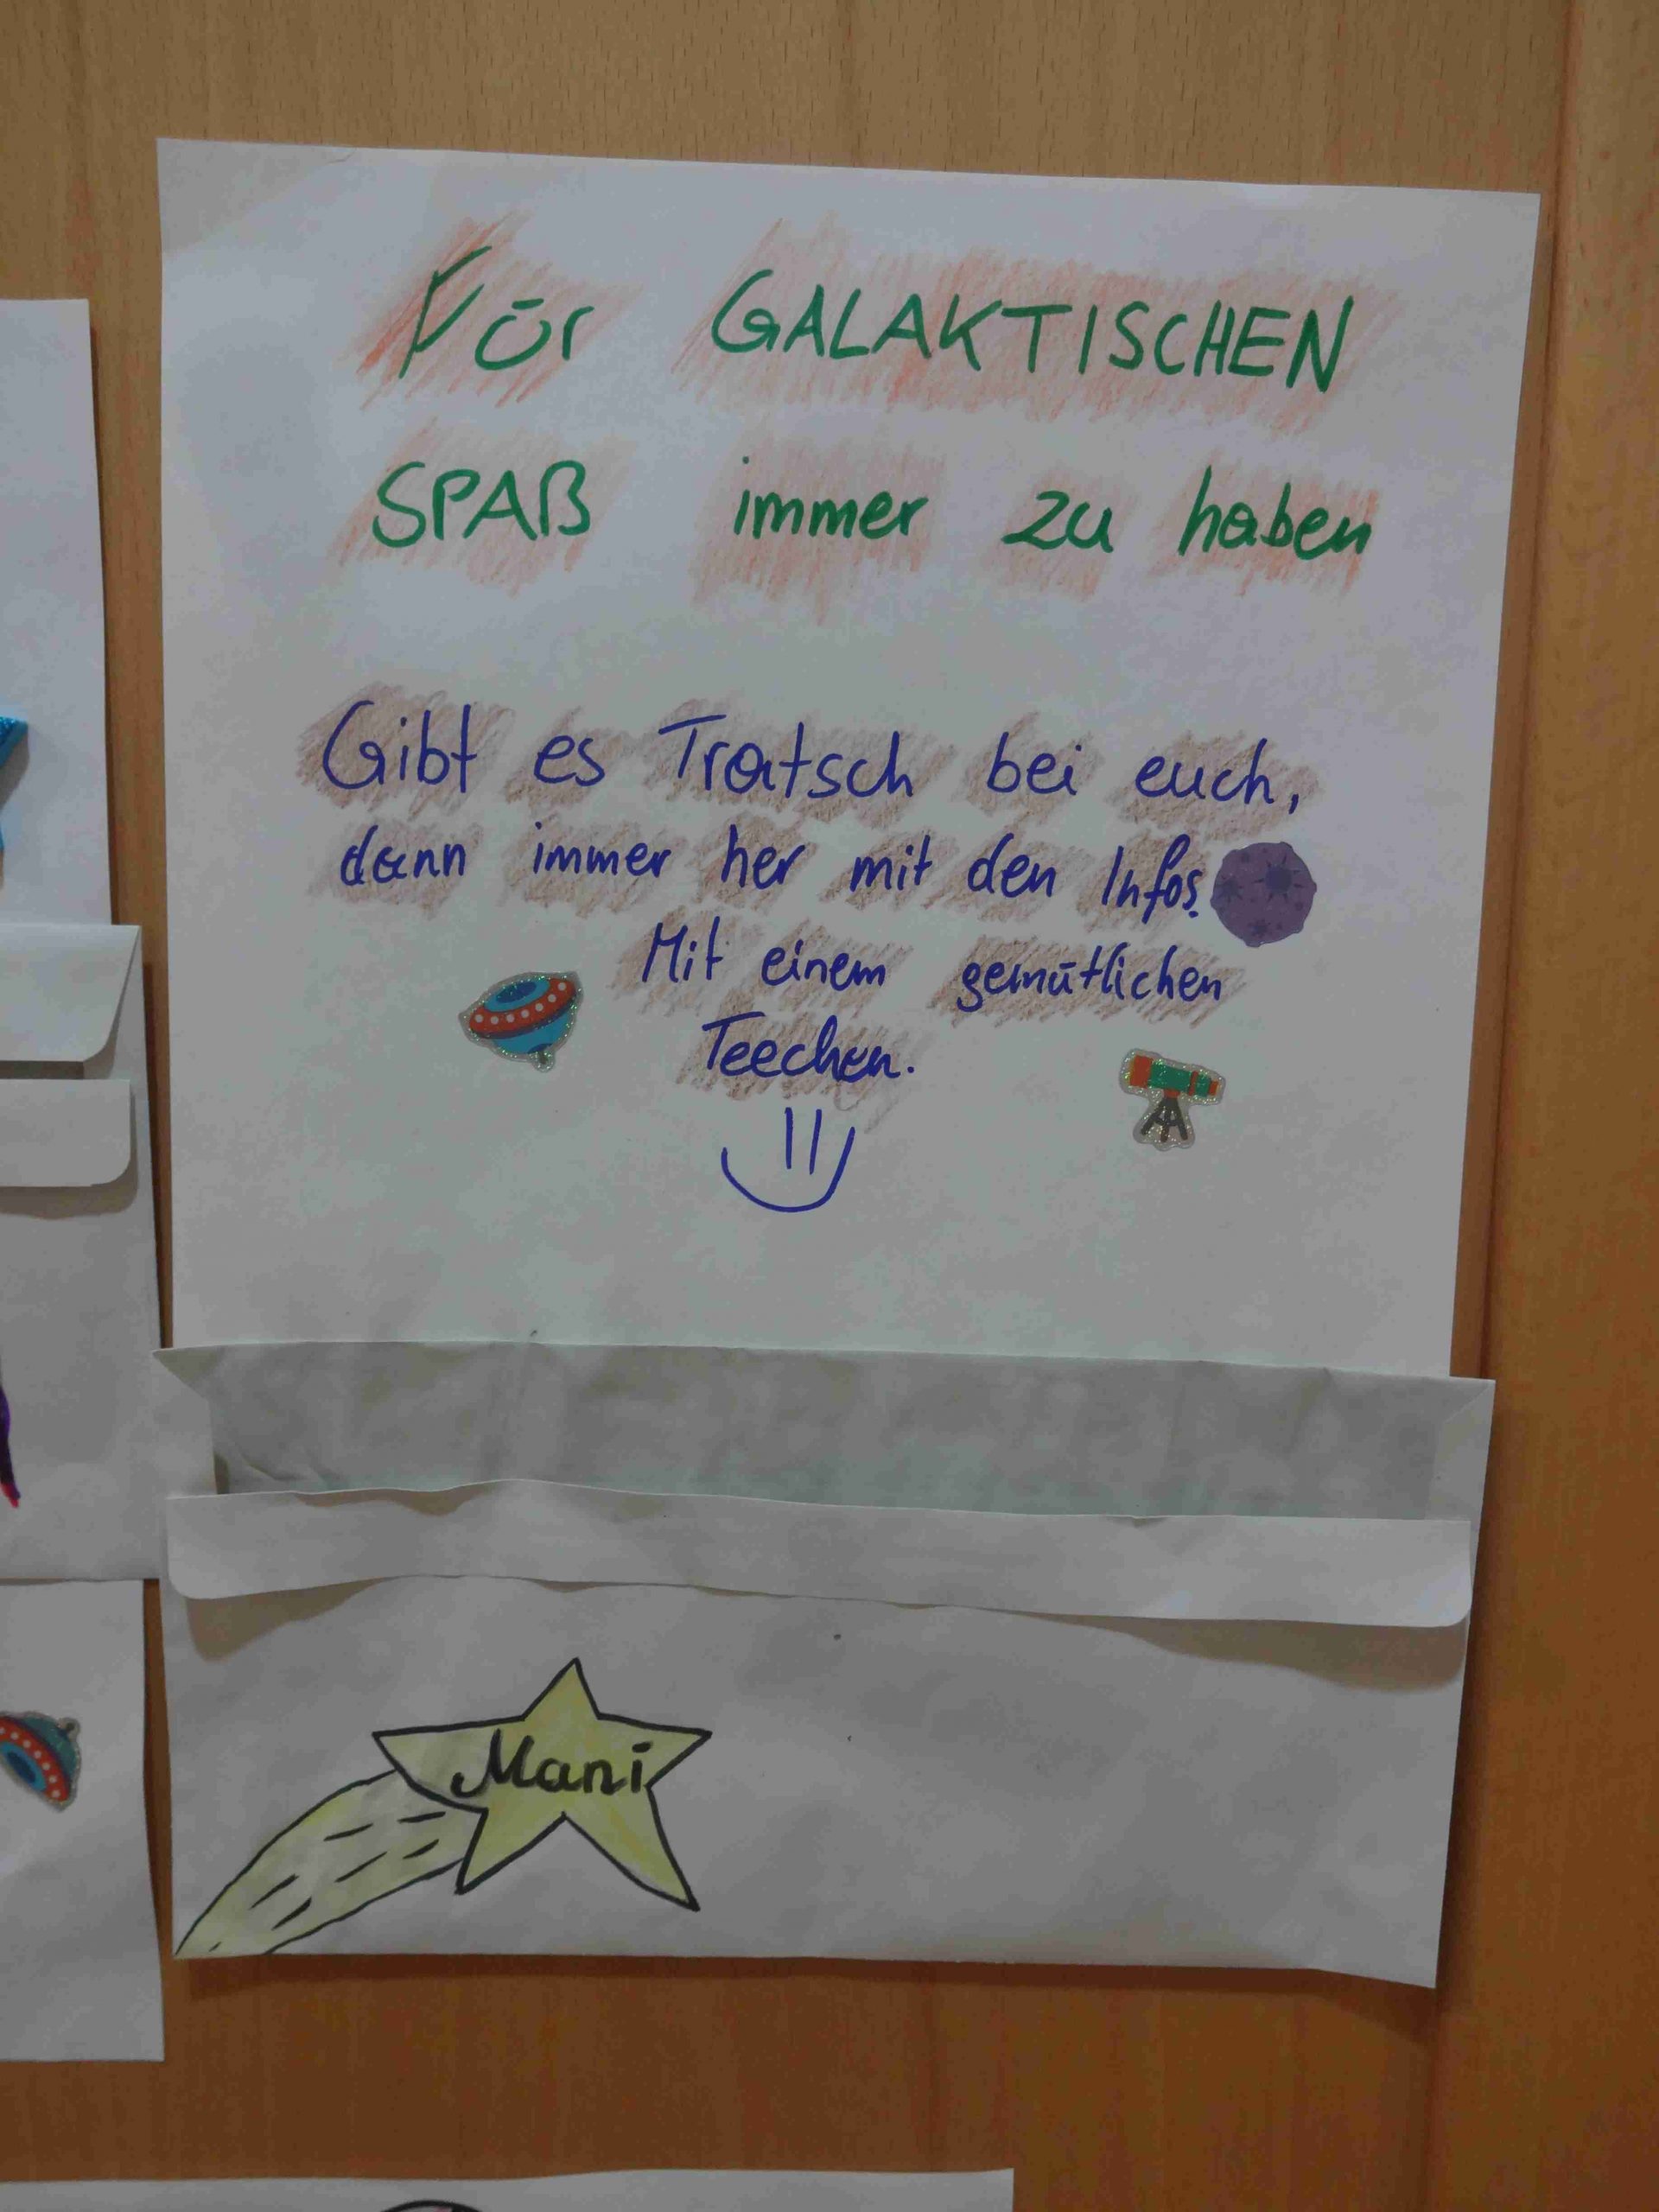 Für GALAKTISCHEN
SPAß immer zu haben
Gibt es Tratsch bei euch,
dann immer her mit den Infos.
Mit einem gemütlichen
Teechen.
Mani